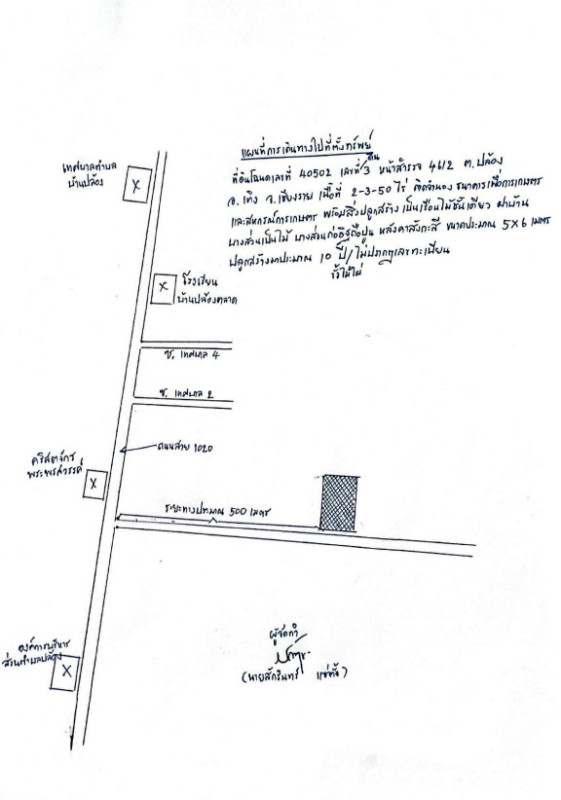 แผนที่การเดินทางไปที่ตั้งทรัพย์
ที่ดินโฉนดเลขที่ 40502 เลขที่ดิน 3 หน้าสำรวจ 4612 ต.ปล้อง
อ.เทิง จ.เชียงราย เนื้อที่ 2-3-50 ไร่ ติดจำนอง ธนาคารเพื่อการเกษตร
และสหกรณ์การเกษตร พร้อมสิ่งปลูกสร้าง เป็นเรือนไม้ชั้นเดียว ฝาบ้าน
บางส่วนเป็นไม้ บางส่วนก่ออิฐถือปูน หลังคาสังกะสี ขนาดประมาณ 5x6 เมตร
ปลูกสร้างมาประมาณ 10 ปี/ไม่ปรากฏเลขทะเบียน
รั้วไม้ไผ่
เทศบาลตำบล
บ้านปล้อง
X
โรงเรียน
บ้านปล้องตลาด
X
ซ. เทศบาล 4
ซ. เทศบาล 2
ถนนสาย 1020
คริสตจักร
พระพรสวรรค์
X
ระยะทางประมาณ 500 เมตร
องค์การบริหาร
ส่วนตำบลปล้อง
X
ผู้จัดทำ
(นายสักรินทร์